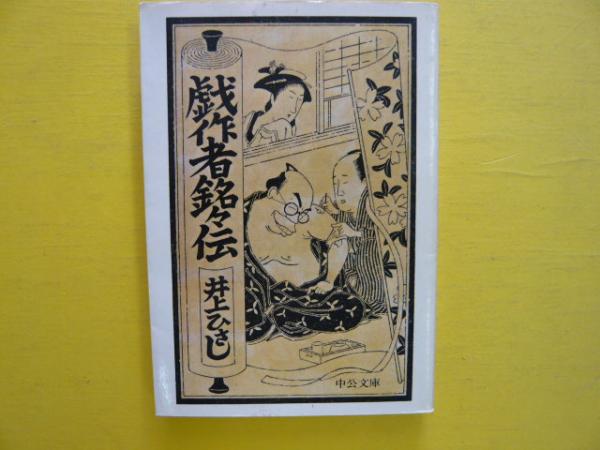 戯作者銘々伝
井上ひさし
中公文庫